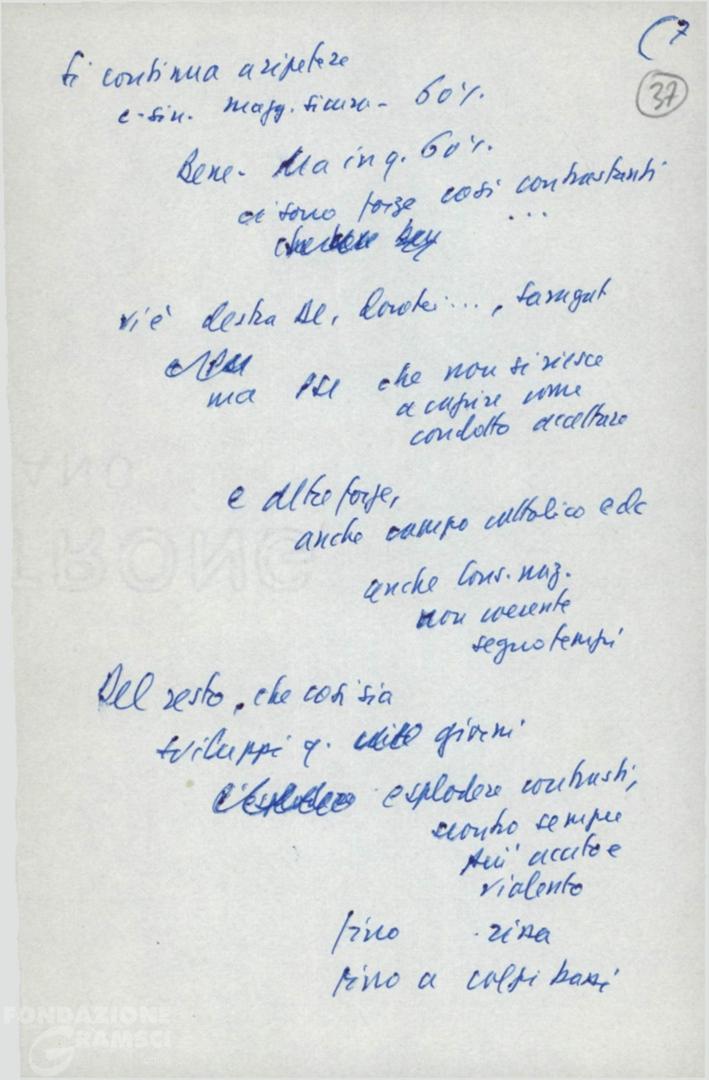 (7
37
Si continua a ripetere
c-sin. magg. sicura - 60%.
Bene - Ma in q. 60%.
ci sono forze così contrastanti
...
vi è destra DC, dorotei..., Saragat
ma PSI che non si riesce
a capire come
condotto accettare
e altre forze,
anche campo cattolico e dc
anche Cons. naz.
non
segno tempi
Del resto, che così sia
sviluppi q. giorni
esplodere contrasti,
scontro sempre
più acuto e
violento
fino rissa
fino a colpi bassi
FONDAZIONE
GRAMSCI